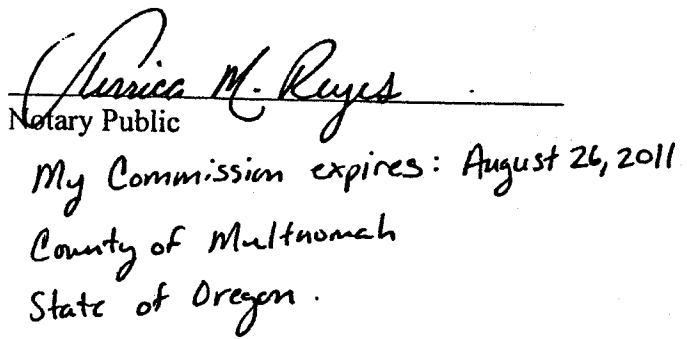 M. Reyes
Notary Public
My Commission expires: August 26, 2011
County of Multnomah
State of Oregon.